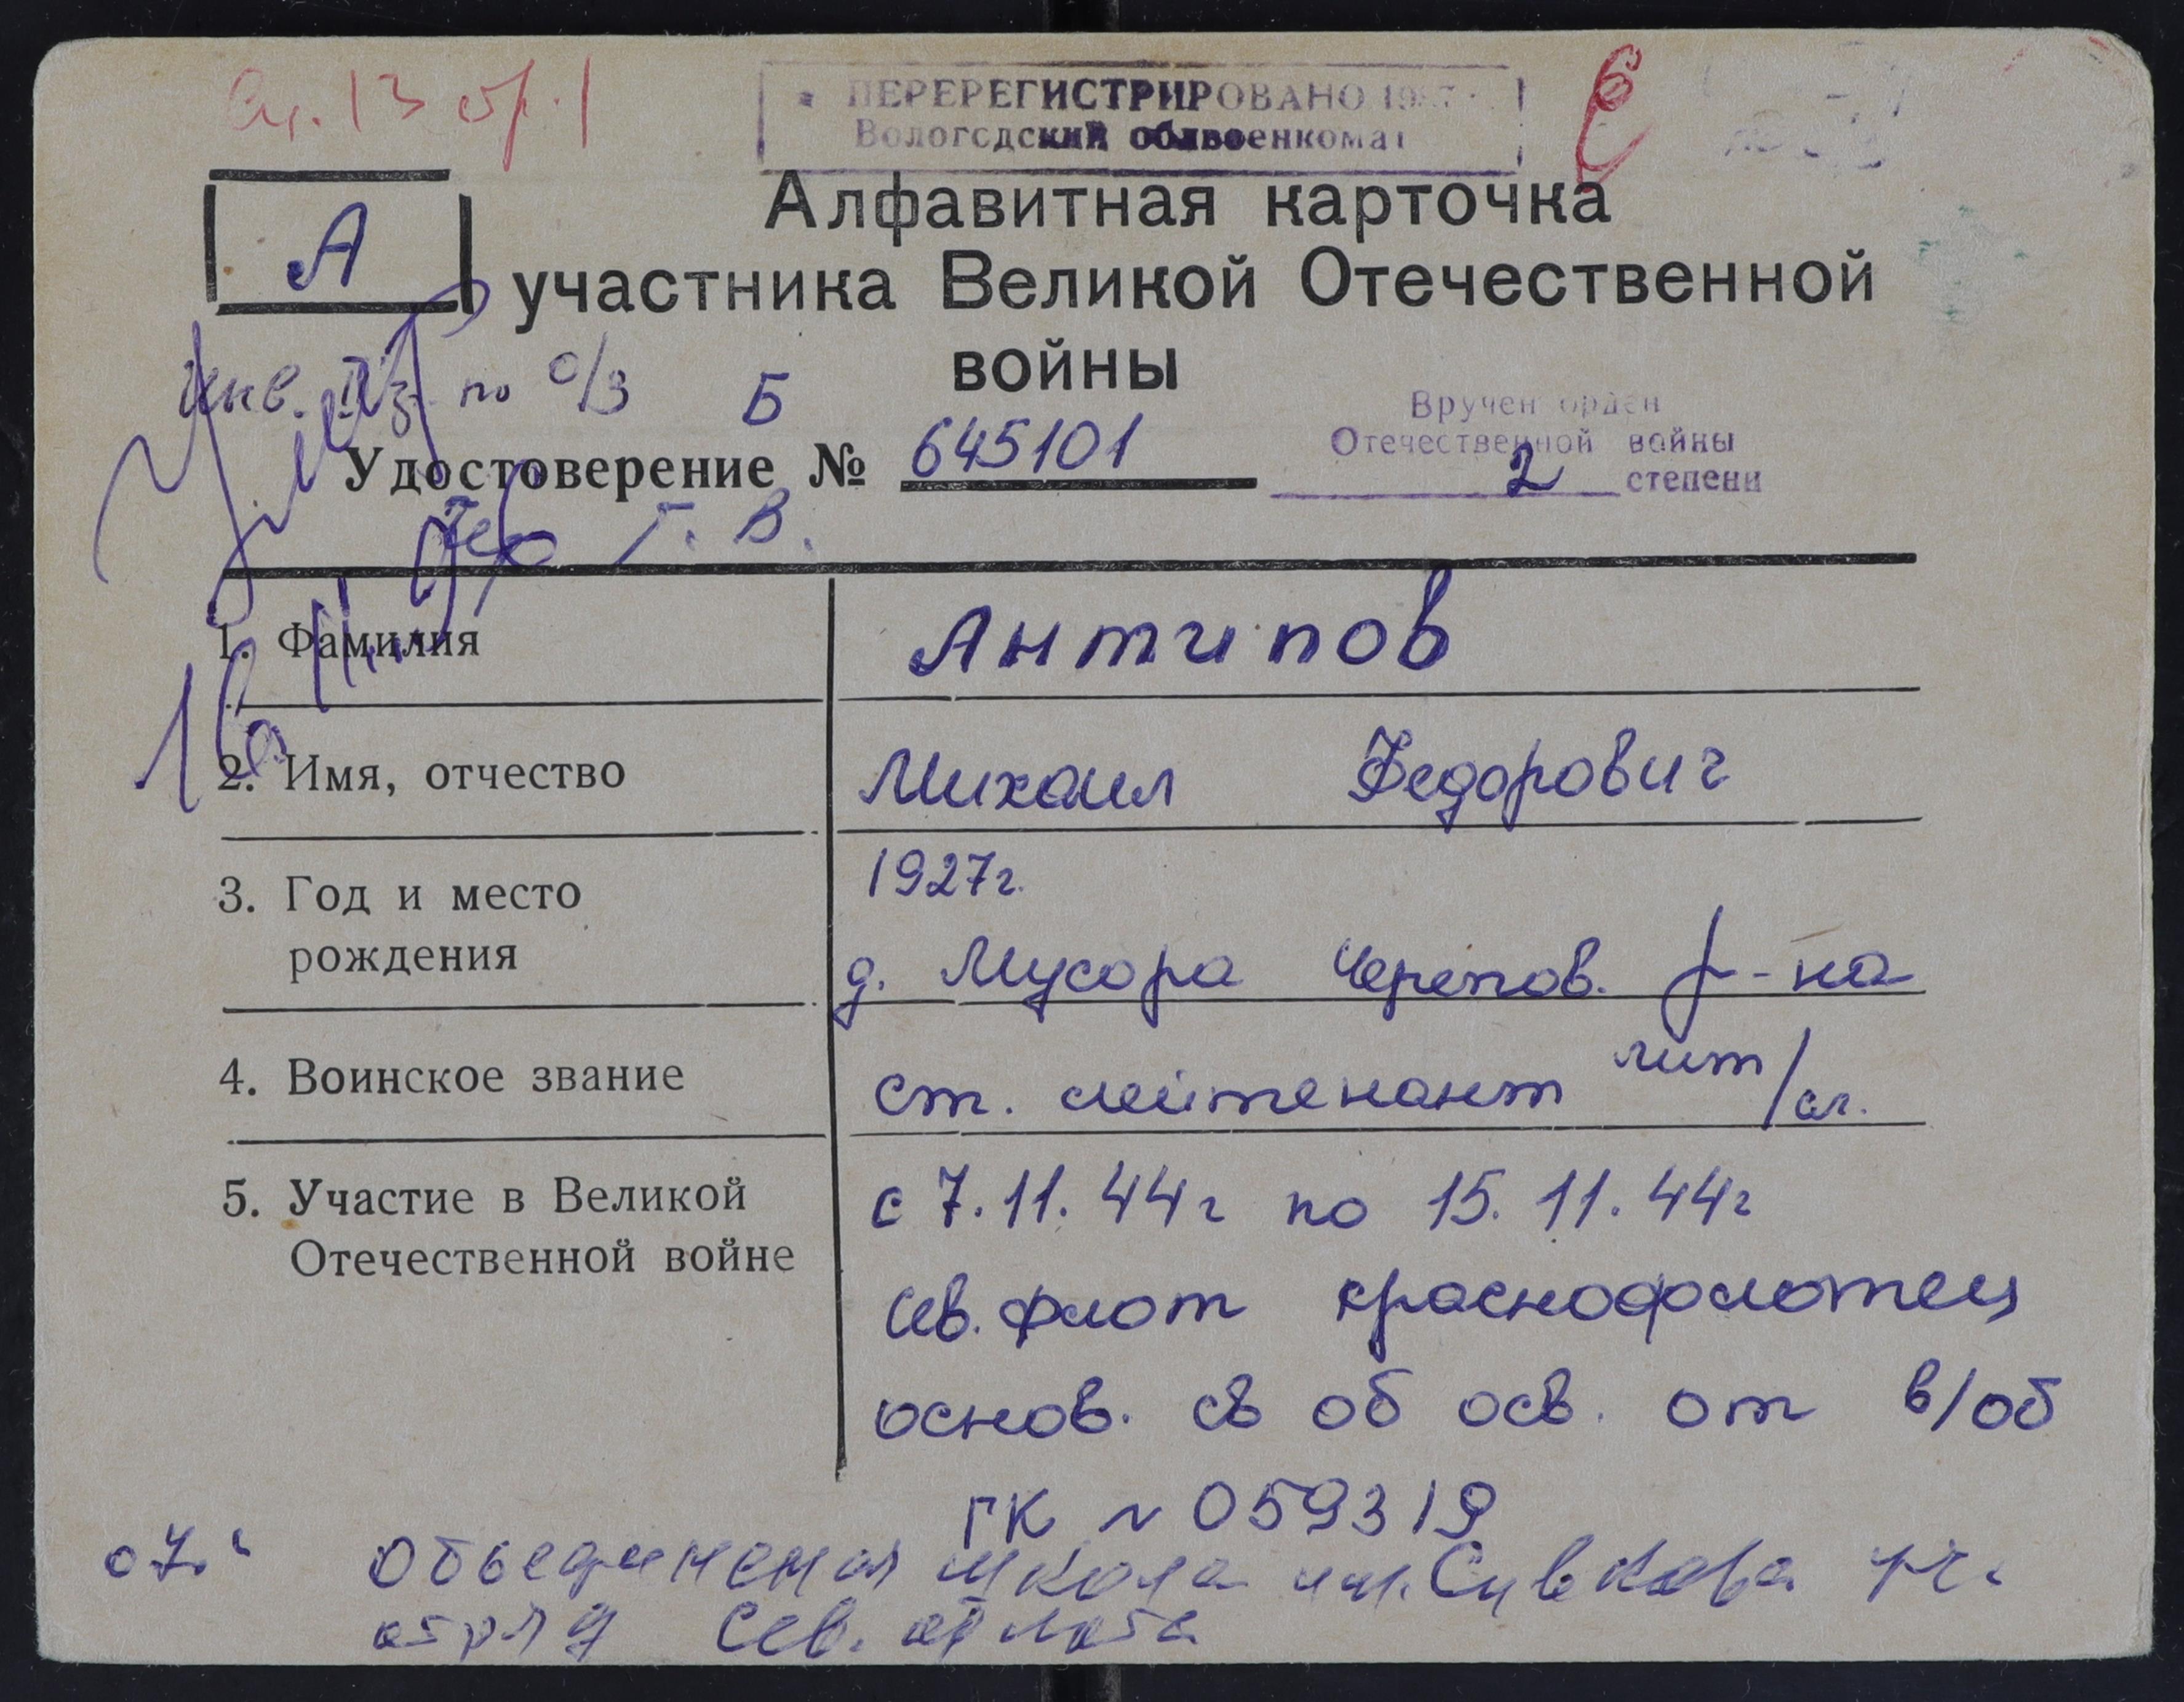 ПЕРЕРЕГИСТРИРОВАНО
Вологодский облвоенкомат
А
Алфавитная карточка
участника Великой Отечественной
войны
Инв. по о/з Б
Удостоверение № 645101
Вручен орден
Отечественной войны
2 степени
Г. В.
1. Фамилия Антипов
2. Имя, отчество Михаил Федорович
3. Год и место 1927г.
рождения д. Мусора Черепов. р-на
4. Воинское звание ст. лейтенант
5. Участие в Великой с 7.11.44г по 15.11.44г
Отечественной войне
Сев. флот краснофлотец
основ. св об осв. от в/об
ГК № 059319
Объединеная школа им. Сивкова
отряд Сев. флота